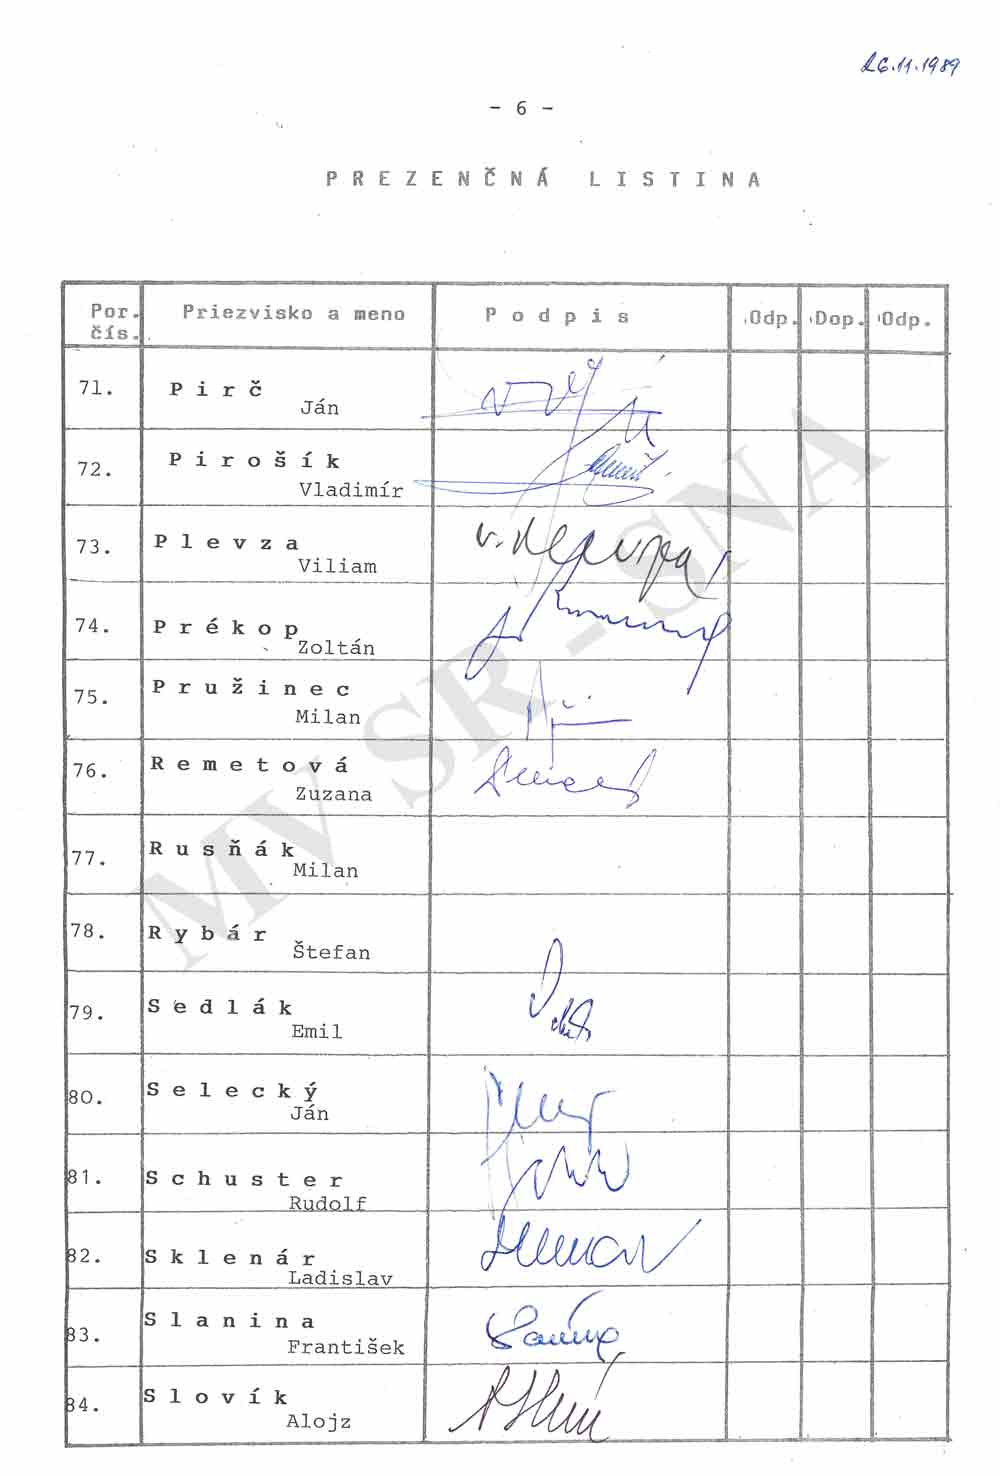 26.11.1989
- 6 -
PREZENČNÁ LISTINA
Por. čís. Priezvisko a meno Podpis Odp. Dop. Odp.
71. Pirč
Ján
72. Pirošík
Vladimír
73. Plevza
Viliam
74. Prékop
Zoltán
75. Pružinec
Milan
76. Remetová
Zuzana
77. Rusňák
Milan
78. Rybár
Štefan
79. Sedlák
Emil
80. Selecký
Ján
81. Schuster
Rudolf
82. Sklenár
Ladislav
83. Slanina
František
84. Slovík
Alojz
MV SR - SNA